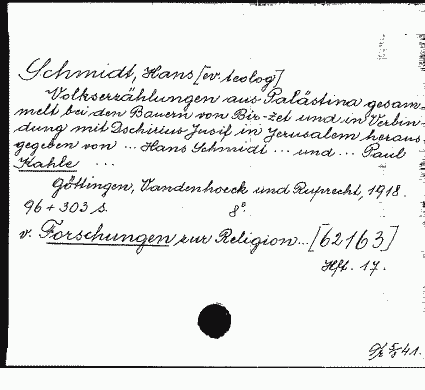 Schmidt, Hans [ev teolog]
Volkserzählungen aus Palästina gesam-
melt bei den Bauern von Bir-zet und in Verbin-
dung mit Dschirius Jusif in Jerusalem heraus
gegeben von ... Hans Schmidt ... und ... Paul
Kahle ...
Göttingen, Vandenhoeck und Ruprecht, 1918.
96 + 303 s. 8°.
v. Forschungen zur Religion... [62163]
Hft. 17.
41.